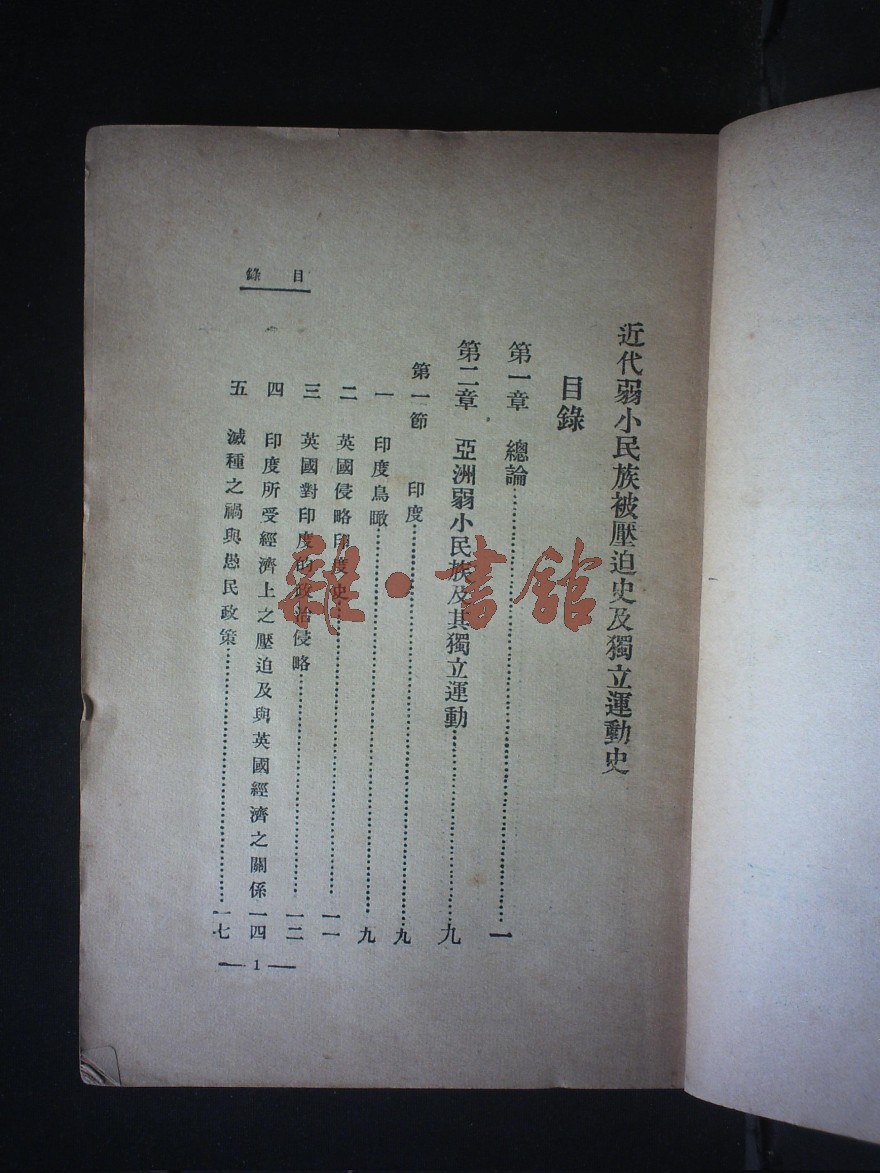 近代弱小民族被壓迫史及獨立運動史
目錄
第一章 總論……一
第二章 亞洲弱小民族及其獨立運動……九
第一節 印度……九
一 印度鳥瞰……九
二 英國侵略印度史……一一
三 英國對印度的政治侵略……一二
四 印度所受經濟上之壓迫及與英國經濟之關係一四
五 滅種之禍與愚民政策……一七
目錄
— 1 —
雜·書館